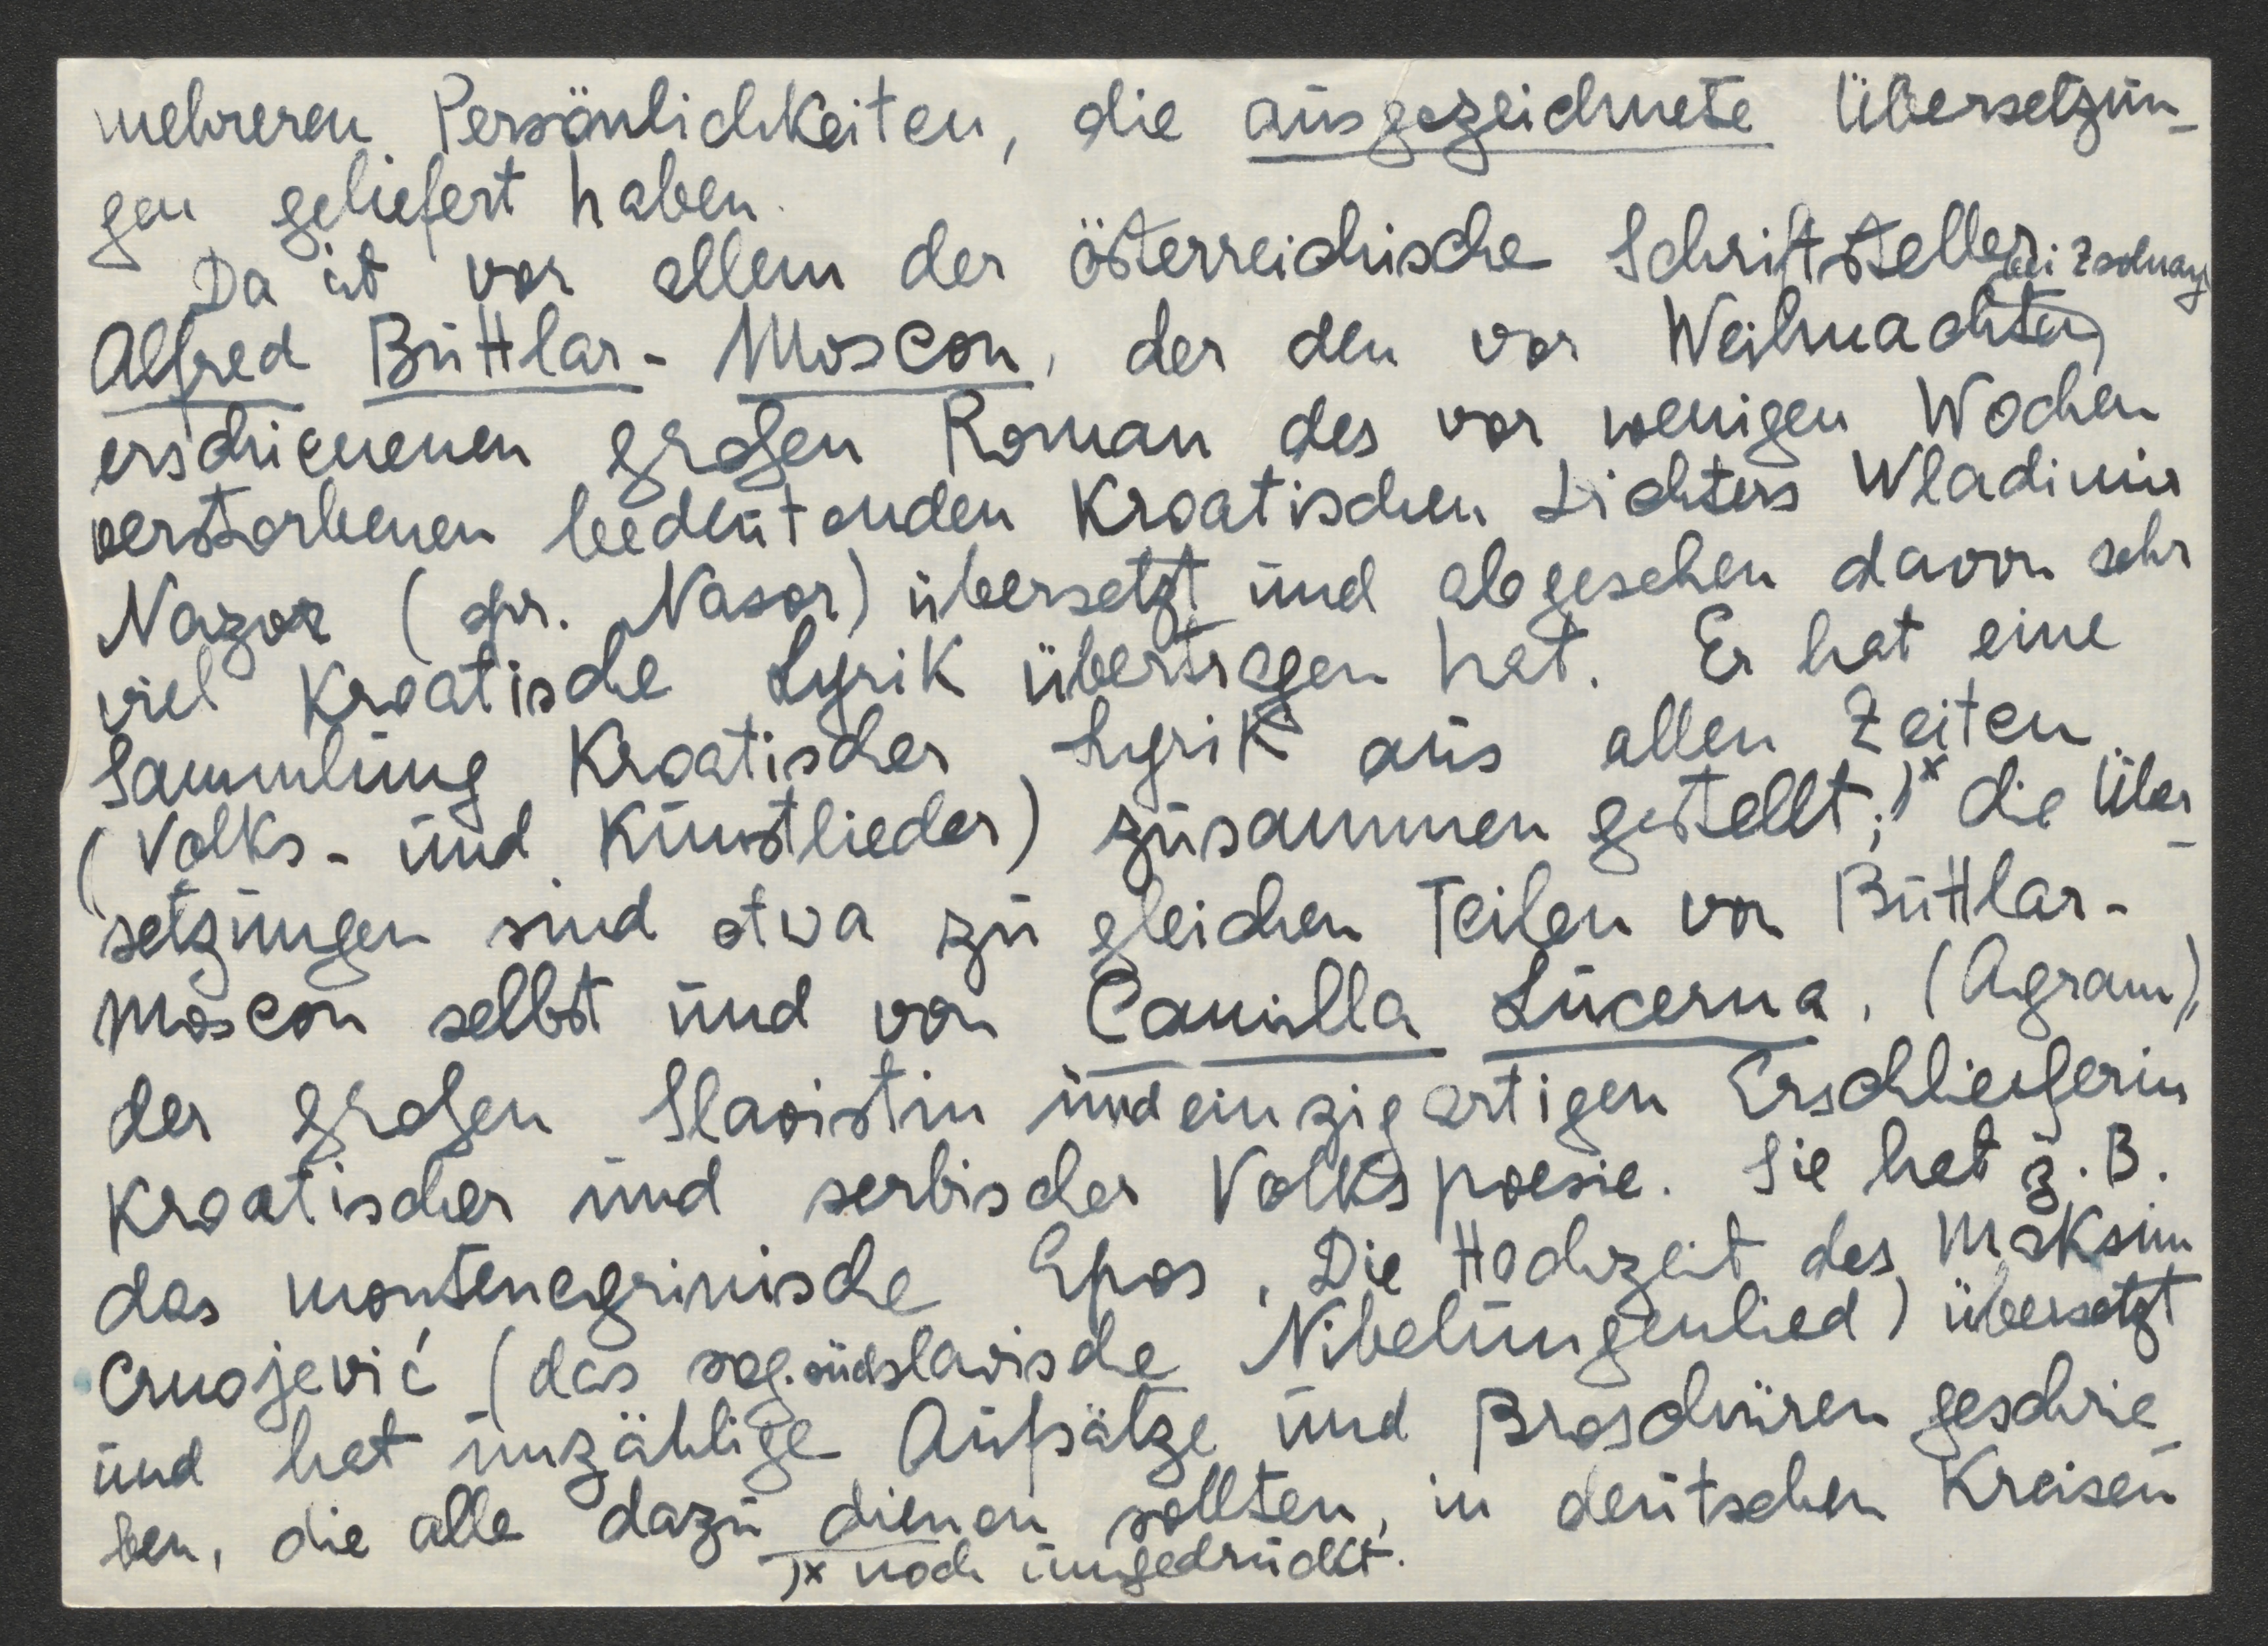 mehreren Persönlichkeiten, die ausgezeichnete Übersetzun-
gen geliefert haben.
Da ist vor allem der österreichische Schriftsteller
bei Zsolnay
Alfred Buttlar-Moscon, der den vor Weihnachten
erschienenen großen Roman des vor wenigen Wochen
verstorbenen bedeutenden kroatischen Dichters Wladimir
Nazor (spr. Nasor) übersetzt und abgesehen davon sehr
viel kroatische Lyrik übertragen hat. Er hat eine
Sammlung kroatischer Lyrik aus allen Zeiten
(Volks- und Kunstlieder) zusammen gestellt;)x die Über-
setzungen sind etwa zu gleichen Teilen von Buttlar-
Moscon selbst und von Camilla Lucerna, (Agram),
der großen Slavistin und einzigartigen Erschließerin
kroatischer und serbischer Volkspoesie. Sie hat z.B.
das montenegrinische Epos, Die Hochzeit des Maksim
Crnojević (das sog. südslavische Nibelungenlied) übersetzt
und hat unzählige Aufsätze und Broschüren geschrie-
ben, die alle dazu dienen sollten, in deutschen Kreisen
)x noch ungedruckt.